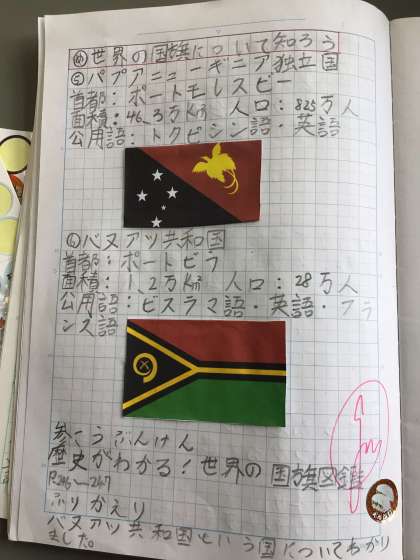 め 世界の国旗について知ろう
⑤パプアニューギニア独立国
首都：ポートモレスビー
面積：46.3万km² 人口：825万人
公用語：トクピシン語・英語
⑥バヌアツ共和国
首都：ポートビラ
面積：1.2万km² 人口：28万人
公用語：ビスラマ語・英語・フラ
ンス語
参こうぶんけん
歴史がわかる！世界の国旗図鑑
P.246〜247
ふりかえり
バヌアツ共和国という国についてわかり
ました。